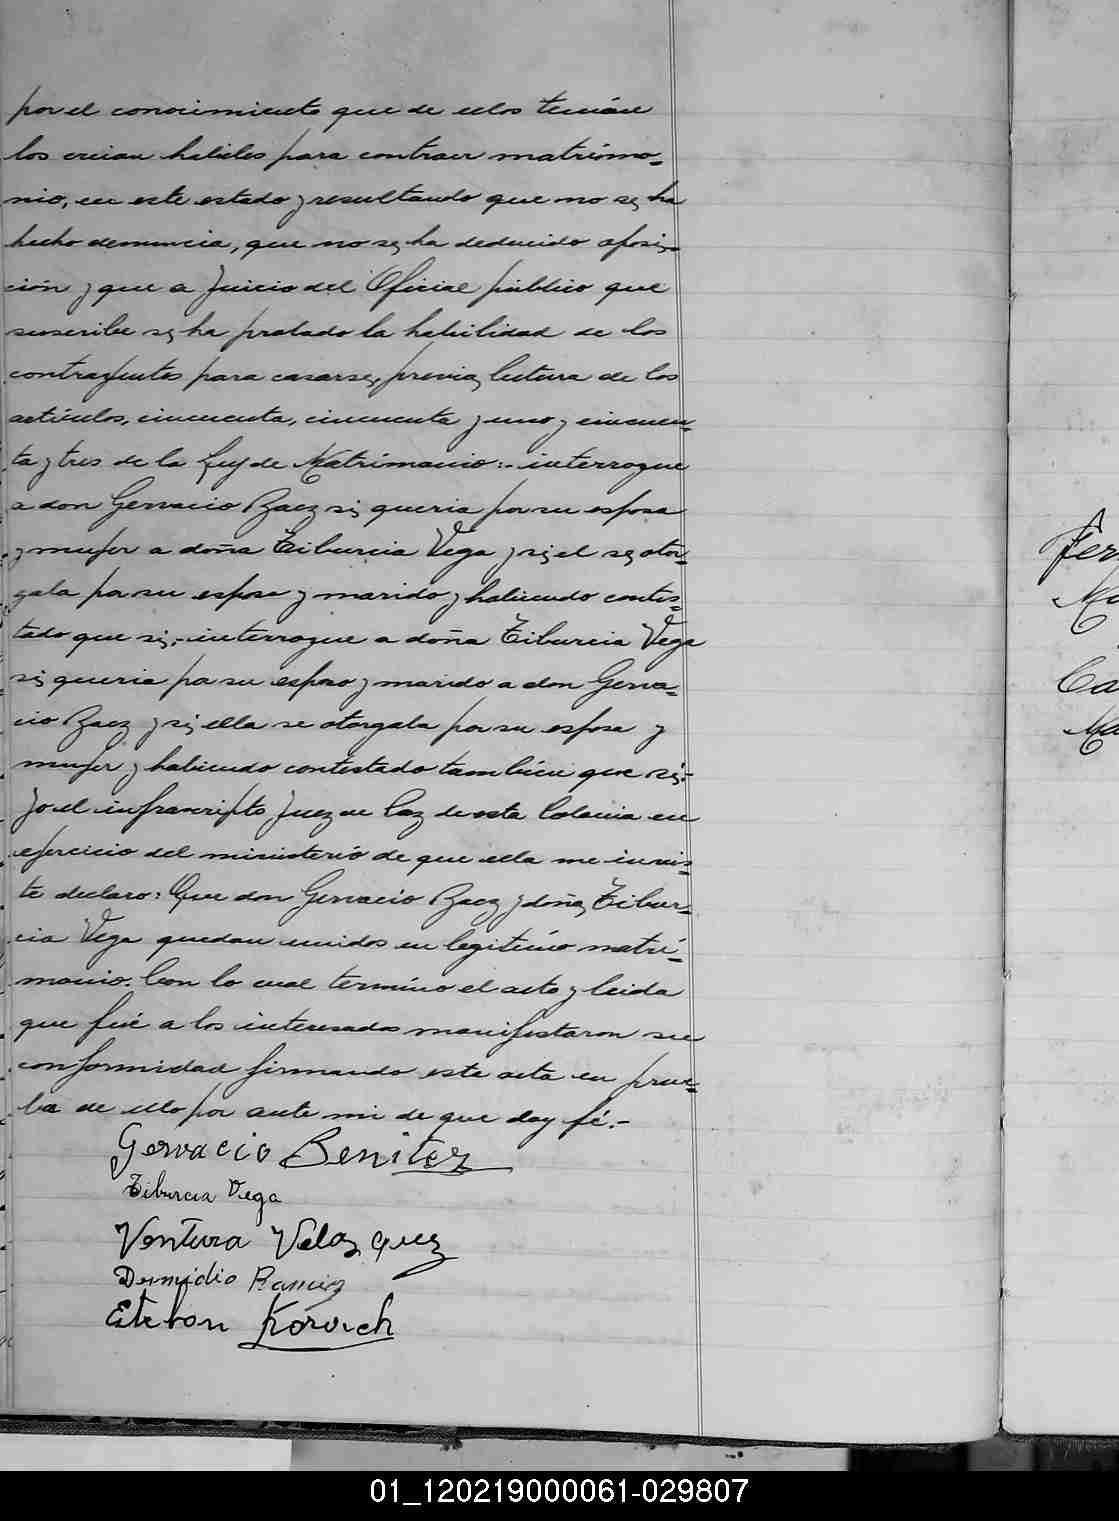 por el conocimiento que de ellos tenian
los creian habiles para contraer matrimo-
nio, en este estado y resultando que no se ha
hecho denuncia, que no se ha deducido oposi-
ción y que a juicio del Oficial público que
suscribe se ha probado la habilidad de los
contrayentes para casarse, previa lectura de los
artículos, cincuenta, cincuenta y uno y cincuen-
ta y tres de la Ley de Matrimonio:- interrogue
a don Gervacio Baez si queria por su esposa
y mujer a doña Tiburcia Vega y si el se otor-
gaba por su esposo y marido y habiendo contes-
tado que si,- interrogue a doña Tiburcia Vega
si queria por su esposo y marido a don Gerva-
cio Baez y si ella se otorgaba por su esposa y
mujer y habiendo contestado tambien que si:-
Yo el infrascripto Juez de Paz de esta Colonia en
ejercicio del ministerio de que ella me invis-
te declaro: Que don Gervacio Baez y doña Tibur-
cia Vega quedan unidos en legitimo matri-
monio. Con lo cual termino el acto y leida
que fué a los interesados manifestaron su
conformidad firmando este acta en prue-
ba de ello por ante mi de que doy fé.-
Gervacio Benitez
Tiburcia Vega
Ventura Velazquez
Dermidio Ramirez
Esteban Korvich
Fer
Ma
Ca
Ma
01_120219000061-029807